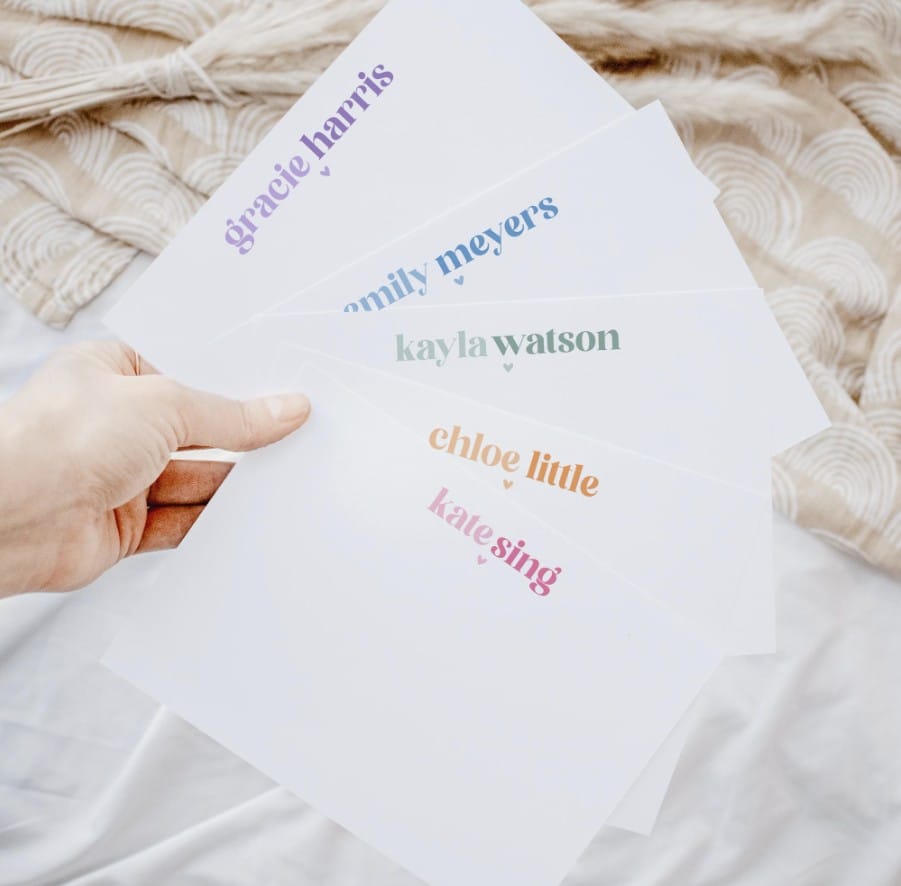 gracie harris
emily meyers
kayla watson
chloe little
kate sing